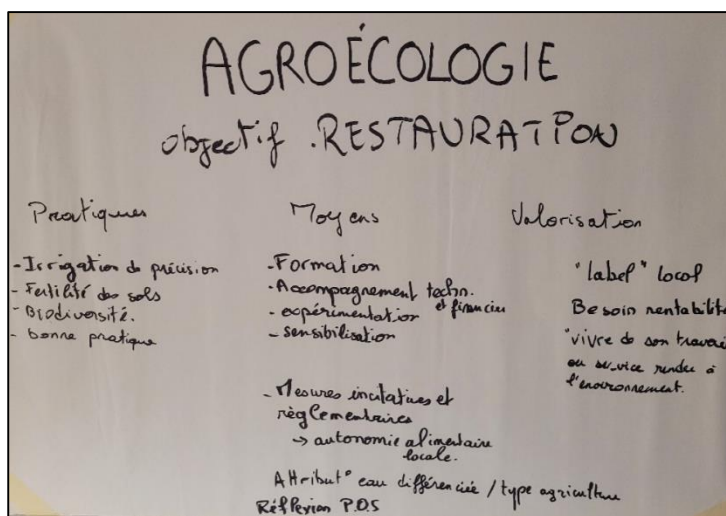 AGROÉCOLOGIE
objectif . RESTAURATION
Pratiques
- Irrigation de précision
- Fertilité des sols
- Biodiversité.
- bonne pratique
Moyens
- Formation
- Accompagnement techn.
et financier
- expérimentation
- sensibilisation
- Mesures incitatives et
règlementaires
→ autonomie alimentaire
locale.
Attribut° eau différenciée / type agriculture
Réflexion P.O.S
Valorisation
"label" local
Besoin rentabilité
"vivre de son travail
ou service rendu à
l'environnement.